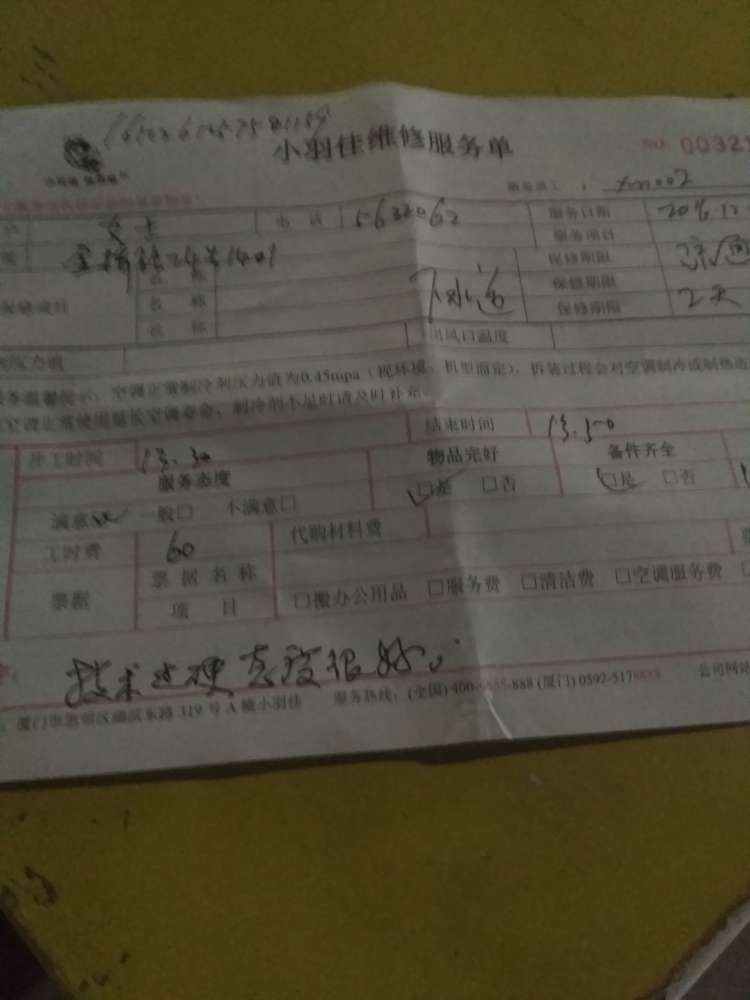 小羽佳维修服务单
NO: 00321
女士 电话 5632062 服务日期 2016.12
服务项目
名称 保修期限
名称 下水道 保修期限 2天
名称 保修期限
出风口温度
空调正常制冷剂压力值为0.45mpa（视环境、机型而定），拆装过程会对空调制冷或制热造
空调正常使用延长空调寿命，制冷剂不足时请及时补充。
开工时间 13.30 结束时间 13.50
服务态度 物品完好 备件齐全
满意 般□ 不满意□ □是 □否 □是 □否
工时费 60 代购材料费
票据 票据名称
项目 □搬办公用品 □服务费 □清洁费 □空调服务费
技术过硬 态度很好。
厦门市思明区湖滨东路 319 号 A 幢小羽佳 服务热线：(全国) 400- -888 (厦门) 0592-517 公司网